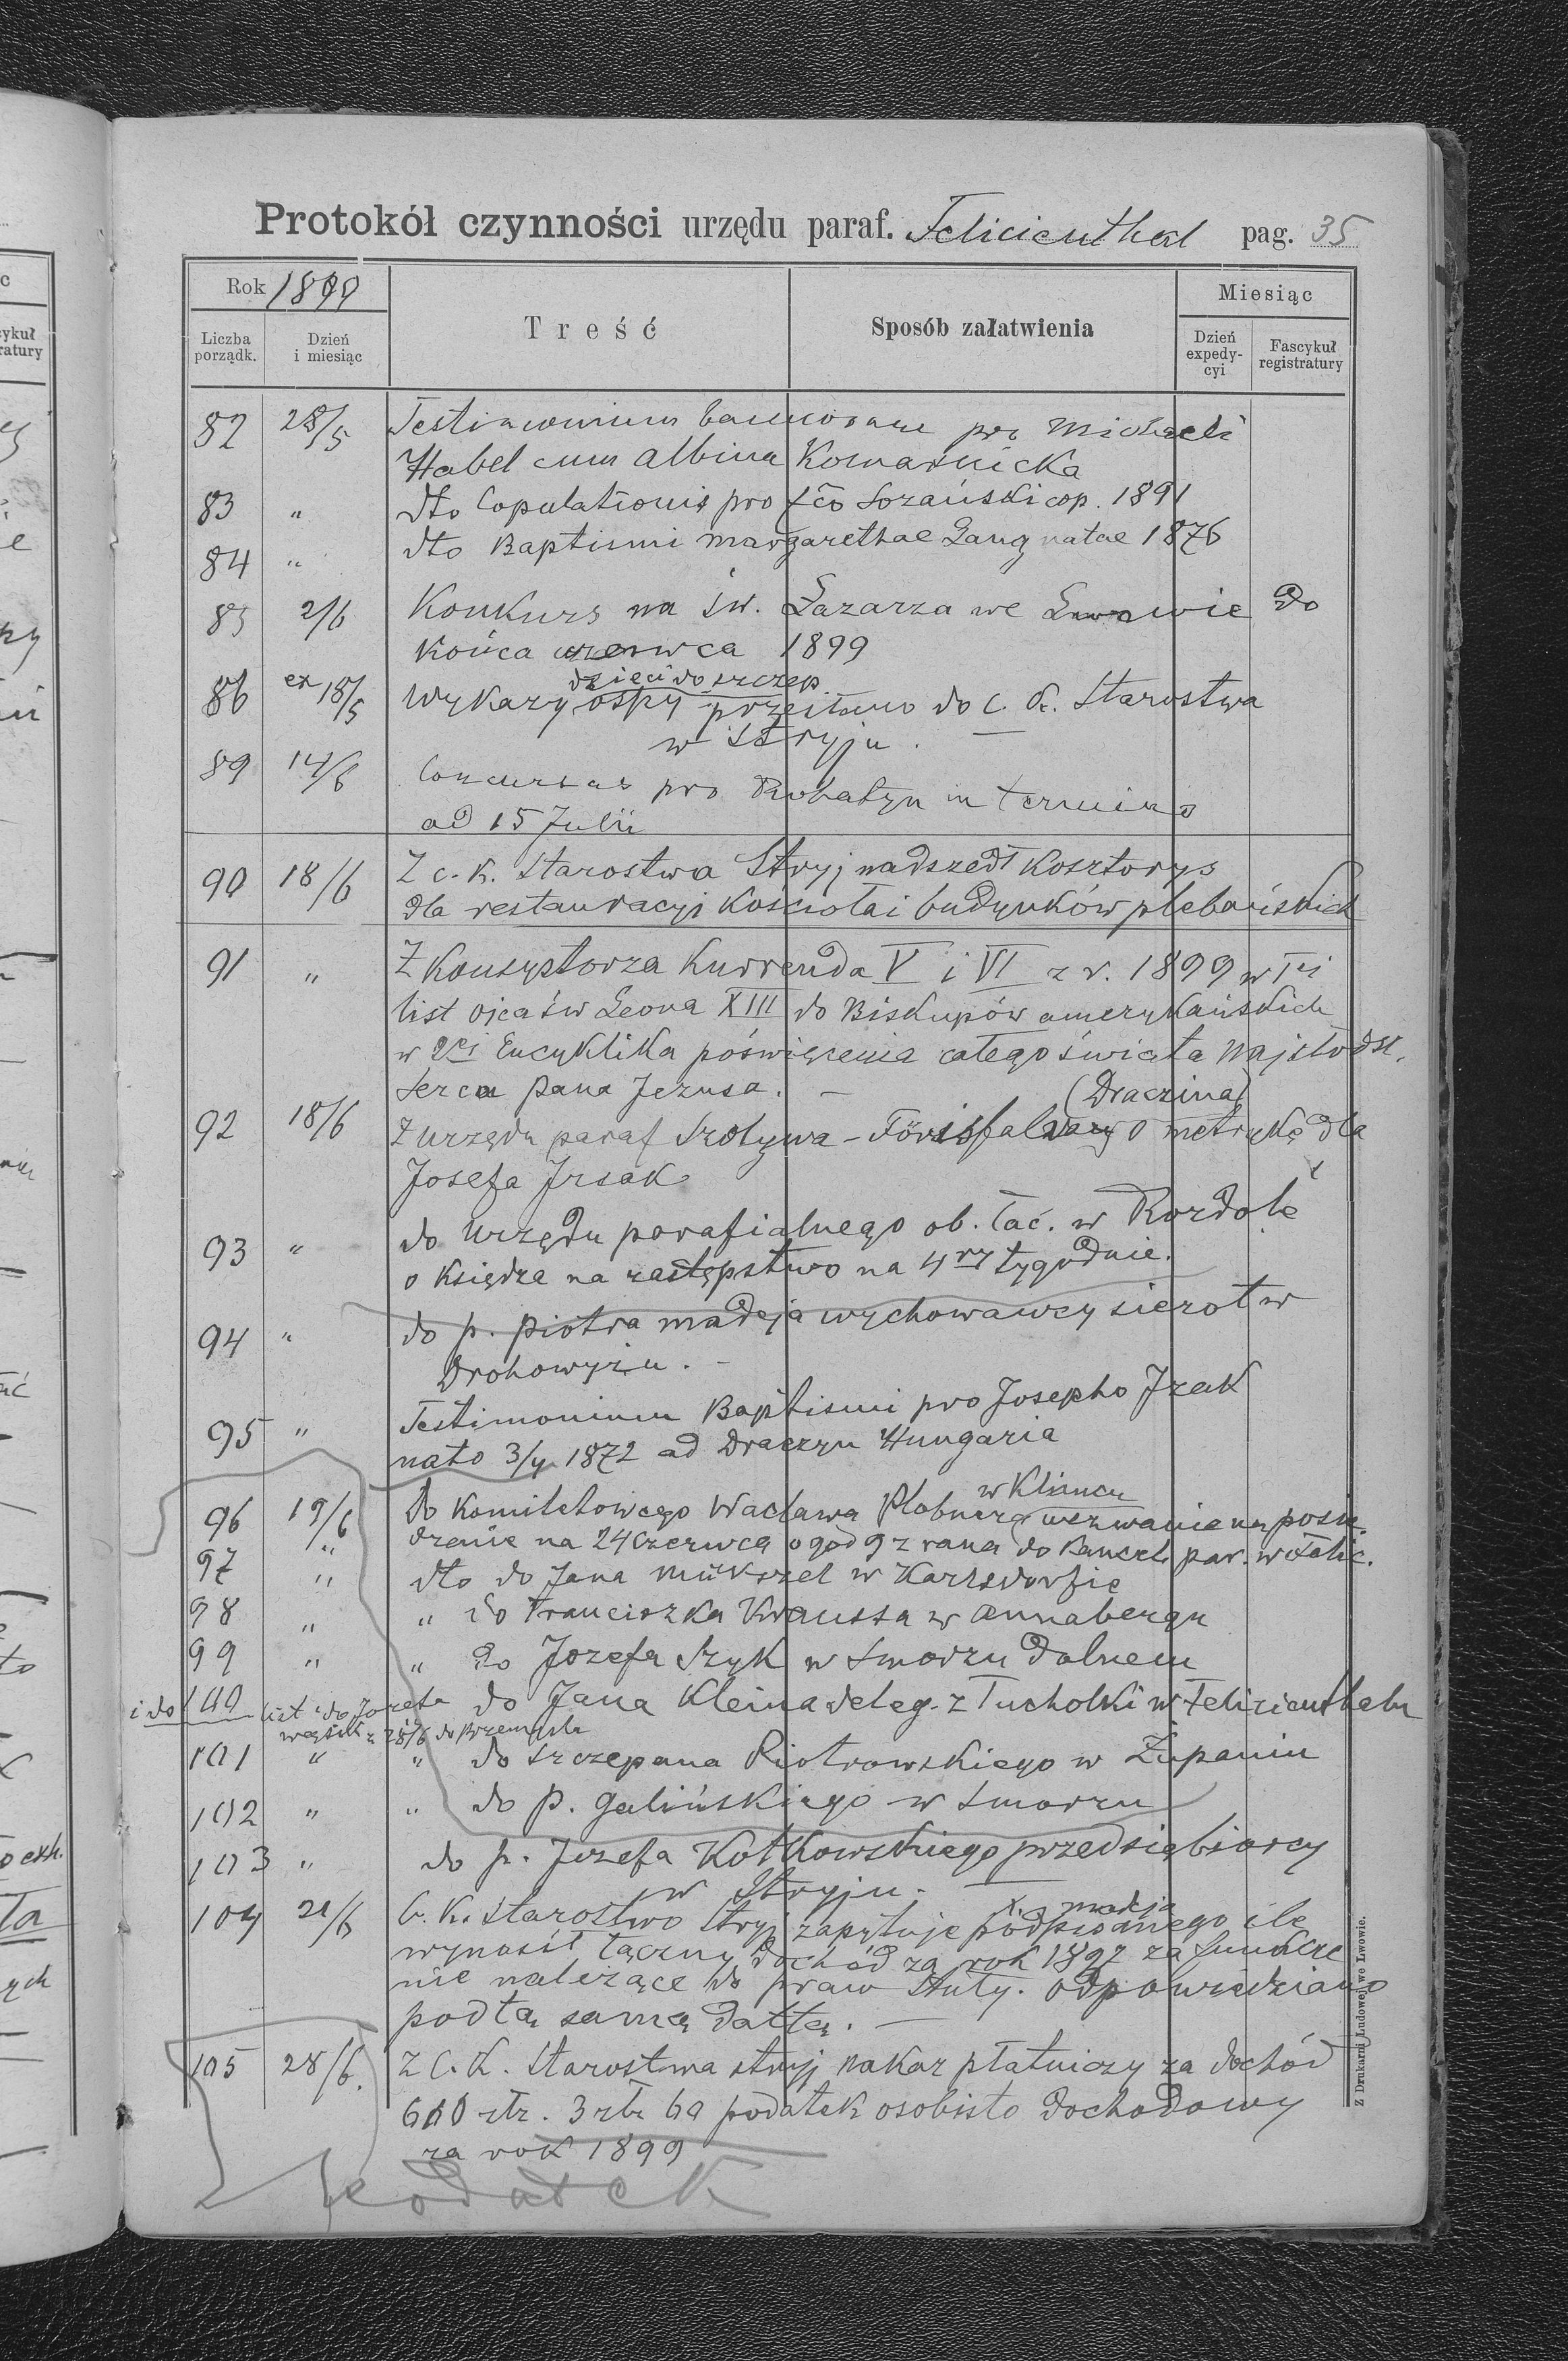 Protokół czynności urzędu paraf. Felicienthal pag. 35
Rok 1899
Treść
Sposób załatwienia
Miesiąc
Liczba porządk.
Dzień i miesiąc
Dzień expedycyi
Fascykuł registratury
82 28/5 Testimonium bannorum pro Michaeli
Habel cum Albina Komarnicka
83 " dto Copulationis pro fco Sozański cop. 1891
84 " dto Baptismi Margarethae Lang natae 1876
85 2/6 Konkurs na św. Łazarza we Lwowie do
Końca czerwca 1899
dzieci do szczep.
86 ex 18/5 Wykazy ospy przesłano do C. K. Starostwa
w Stryju. —
89 14/6 Concursus pro Rohatyn in termino
ad 15 Julii
90 18/6 Z c. k. Starostwa Stryj nadszedł Kosztorys
dla restauracyi Kościoła i budynków plebańskich
91 " Z Konsystorza Kurrenda V i VI z r. 1899 w Iej
list ojca św Leona XIII do Biskupów amerykańskich
w 2ej Encyklika poświęcenia całego świata Najsłodsz.
Serca Pana Jezusa. —
(Draczina)
92 18/6 Z urzędu paraf Szolywa - o metrykę dla
Josefa Jrsak
93 " do Urzędu parafialnego ob. łać. w Rozdole
o Księdza na zastępstwo na 4ry tygodnie.
94 " do p. Piotra Madeja wychowawcy sierot w
Drohowyżu. -
95 " Testimonium Baptismi pro Josepho Jzak
nato 3/4 1872 ad Draczyn Hungaria
w Klimcu
96 19/6 Do Komitetowego Wacława Plobnera wezwanie na posie-
dzenie na 24 Czerwca o god 9 z rana do Kancel. par. w Felic.
97 " dto do Jana Mükszel w Karlsdorfie
98 " " do Franciszka Kraussa w Annabergu
99 " " do Jozefa Szyk w Smorzu Dolnem
i do 100 list do Jozefa do Jana Kleina deleg. z Tucholki w Felizienthalu
z 28/6 do Przemyśla
101 " " do Szczepana Piotrowskiego w Żupaniu
102 " " do P. Galińskiego w Smorzu
103 " do p. Jozefa Kotkowskiego przedsiębiorcy
w Stryju. —
X. Madeja
104 21/6 C. K. Starostwo Stryj zapytuje podpisanego ile
wynosił łączny dochód za rok 1897 za funkcze
nie należące do praw Stuły. Odpowiedziano
pod tą samą dattą. —
105 28/6. Z C. K. Starostwa Stryj nakaz płatniczy za dochód
600 złr. 3 złr 60 podatek osobisto dochodowy
za rok 1899
Podatek
Z Drukarni Ludowej we Lwowie.